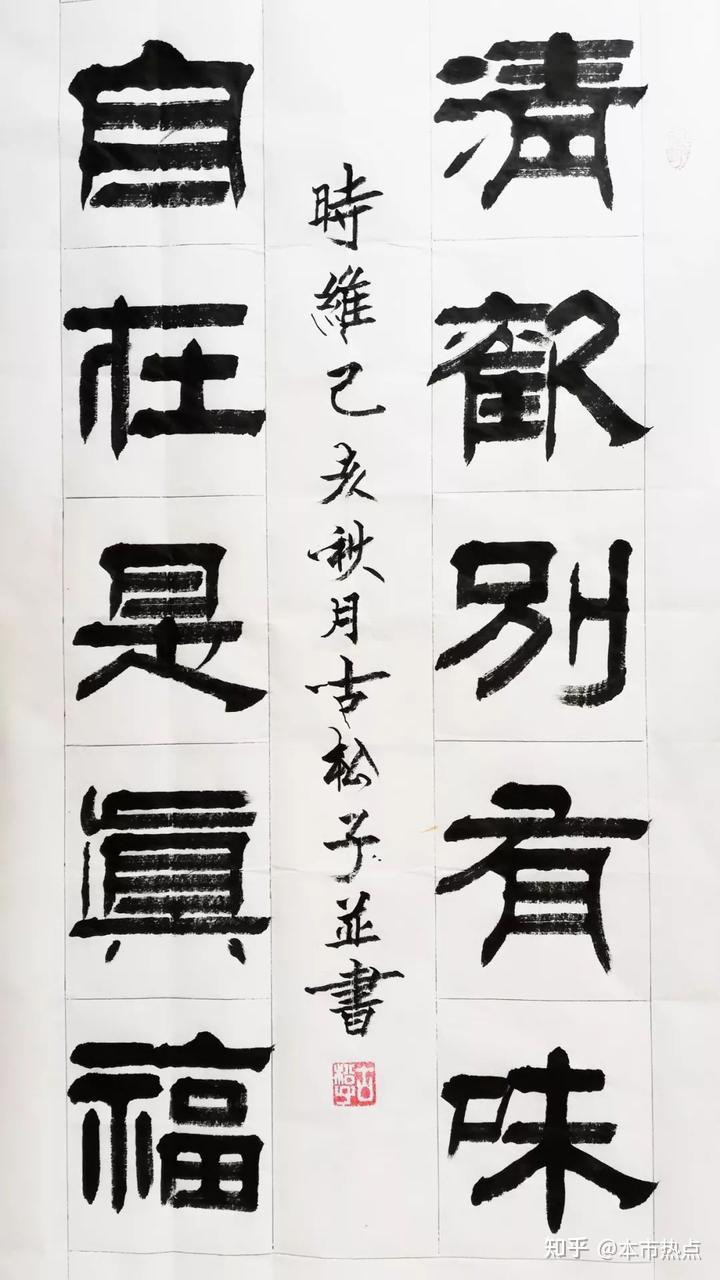 清歡別有味
自在是真福
時維己亥秋月古松子並書
古松子
知乎 @本市热点